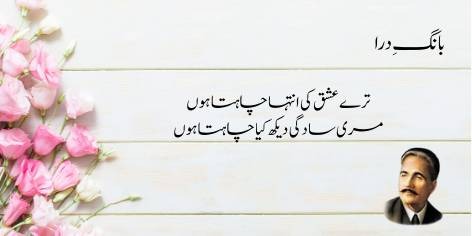 بانگِ درا
ترے عشق کی انتہا چاہتا ہوں
مری سادگی دیکھ کیا چاہتا ہوں